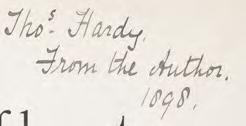 Thos. Hardy.
From the Author.
1898.